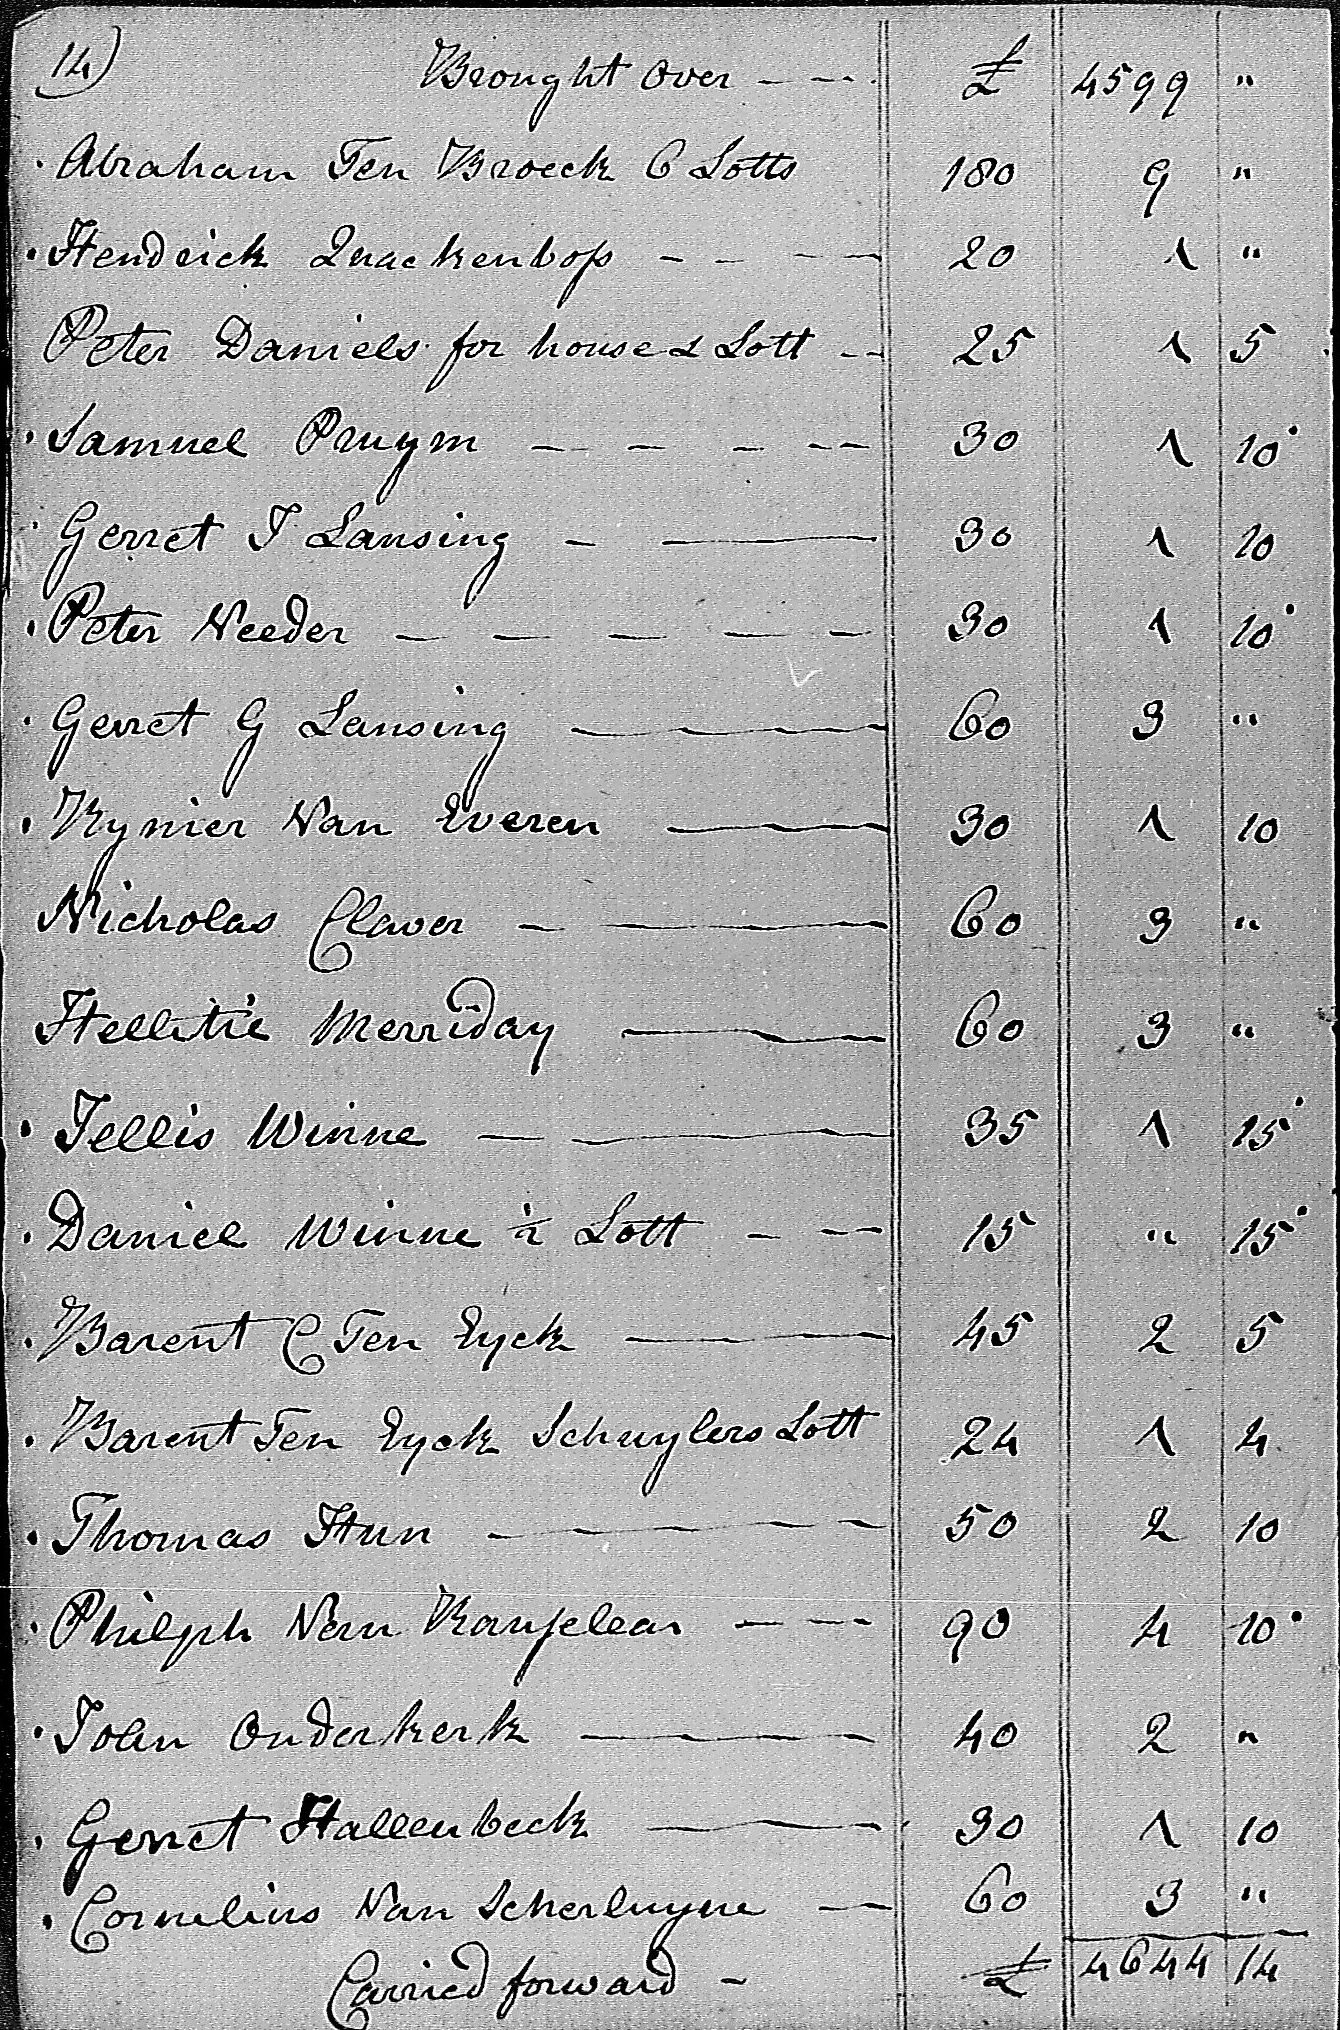 14)
Brought over - - - £ 4599 "
Abraham Ten Broeck 6 Lotts 180 9 "
Hendrick Quackenboss - - - - 20 1 "
Peter Daniels for house & Lott - - 25 1 5
Samuel Pruym - - - - - 30 1 10
Gerret I Lansing - - 30 1 10
Peter Veeder - - - - - 30 1 10
Gerret G Lansing - 60 3 "
Rynier Van Everen - 30 1 10
Nicholas Claver - - 60 3 "
Hellitie Merriday - 60 3 "
Jellis Winne - - 35 1 15
Daniel Winne ½ Lott - - - 15 " 15
Barent C Ten Eyck - 45 2 5
Barent Ten Eyck Schuylers Lott 24 1 4
Thomas Hun - 50 2 10
Philiph Van Ranselear - - - 90 4 10
John Ouderkerk - 40 2 "
Gerret Hallenbeck - 30 1 10
Cornelius Van Scherluyne - - 60 3 "
Carried forward - £ 4644 14